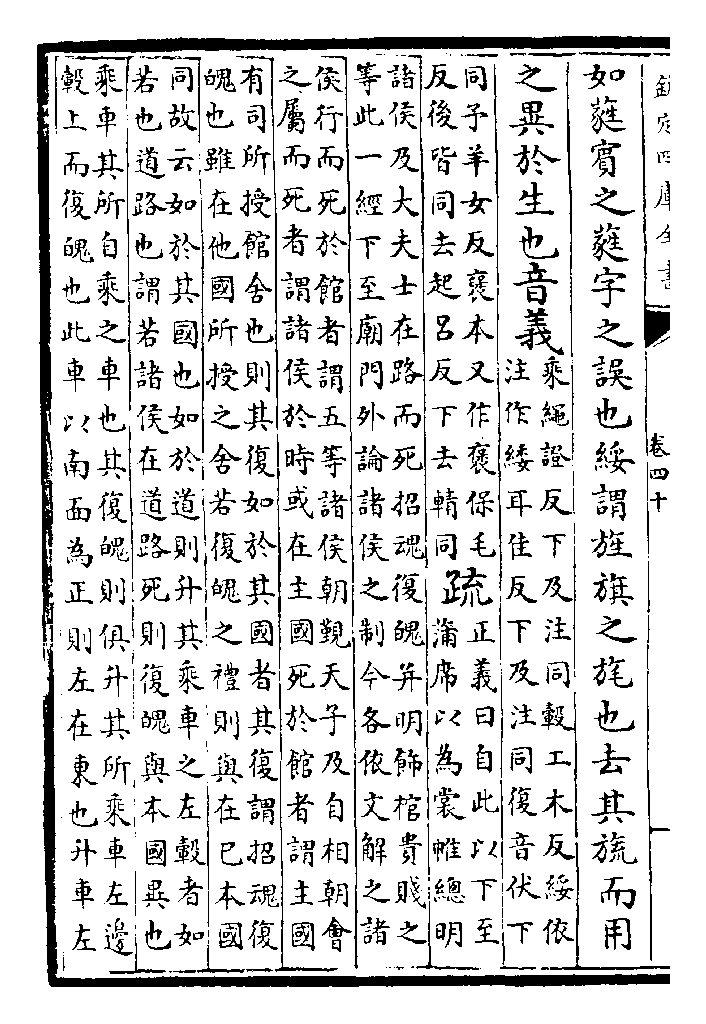 欽定四庫全書 卷四十
如蕤賓之蕤字之誤也綏謂旌旗之旄也去其旒而用
之異於生也音義
乘繩證反下及注同轂工木反綏依
注作緌耳隹反下及注同復音伏下
同予羊女反裒本又作褒保毛
反後皆同去起呂反下去輤同
疏
正義曰自此以下至
蒲席以為裳帷總明
諸侯及大夫士在路而死招魂復魄并明飾棺貴賤之
等此一經下至廟門外論諸侯之制今各依文解之諸
侯行而死於館者謂五等諸侯朝覲天子及自相朝會
之屬而死者謂諸侯於時或在主國死於館者謂主國
有司所授館舍也則其復如於其國者其復謂招魂復
魄也雖在他國所授之舍若復魄之禮則與在已本國
同故云如於其國也如於道則升其乘車之左轂者如
若也道路也謂若諸侯在道路死則復魄與本國異也
乘車其所自乘之車也其復魄則俱升其所乘車左邊
轂上而復魄也此車以南面為正則左在東也升車左